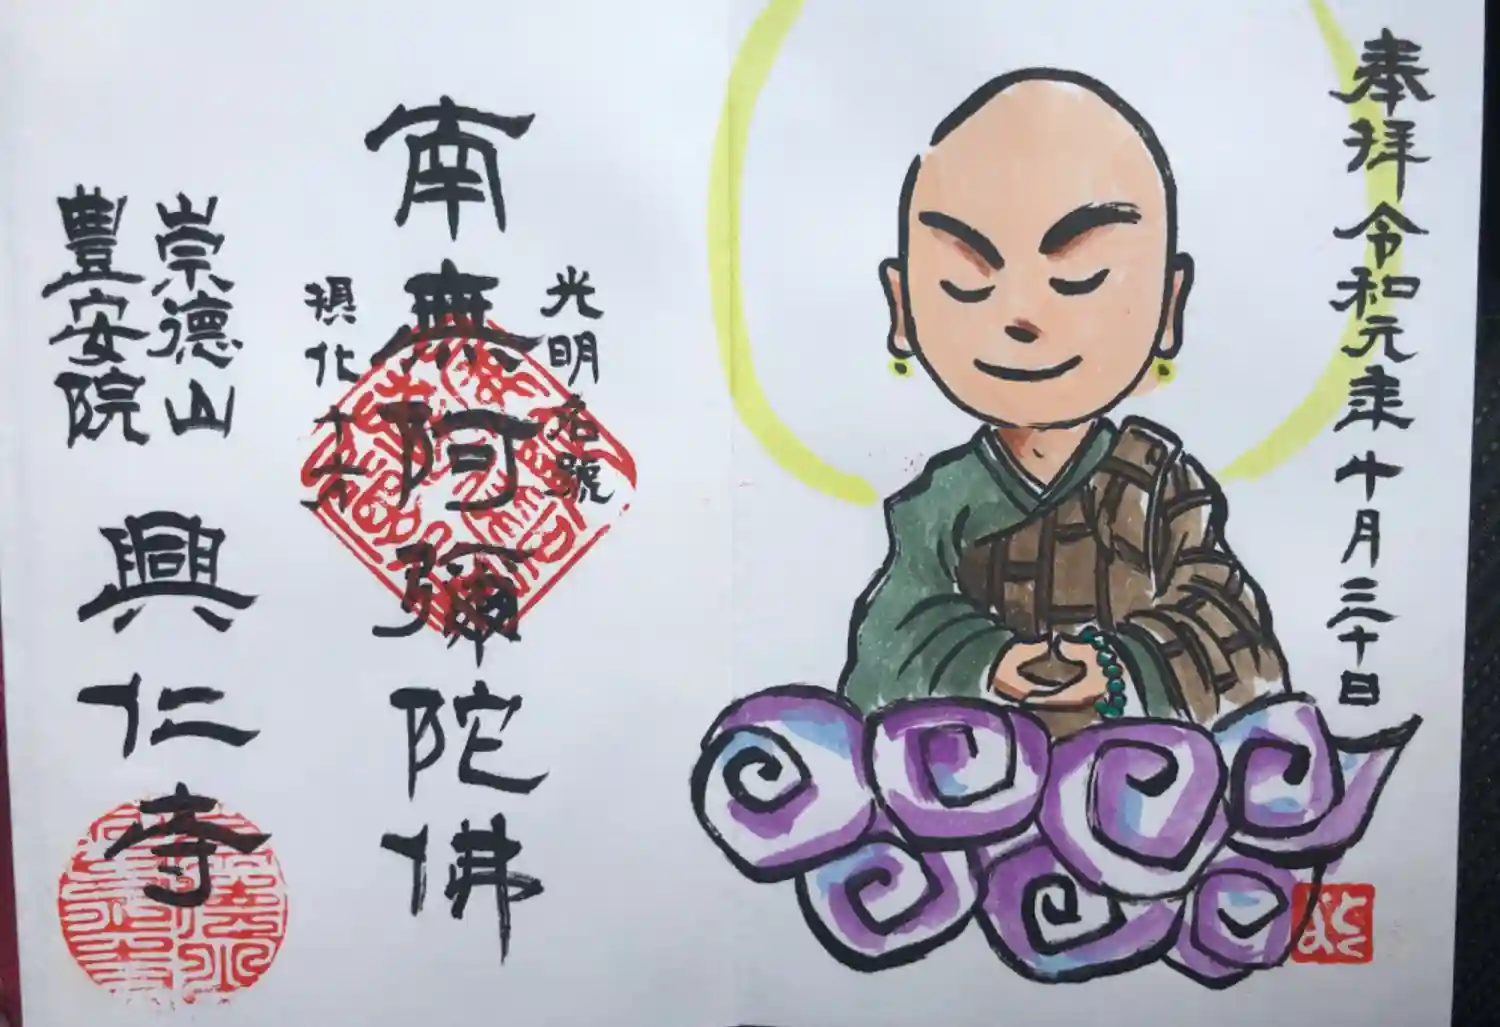 奉拝 令和元年十月三十日
光明名號
南無阿彌陀佛
摂化十方
崇德山
豐安院
興仁寺